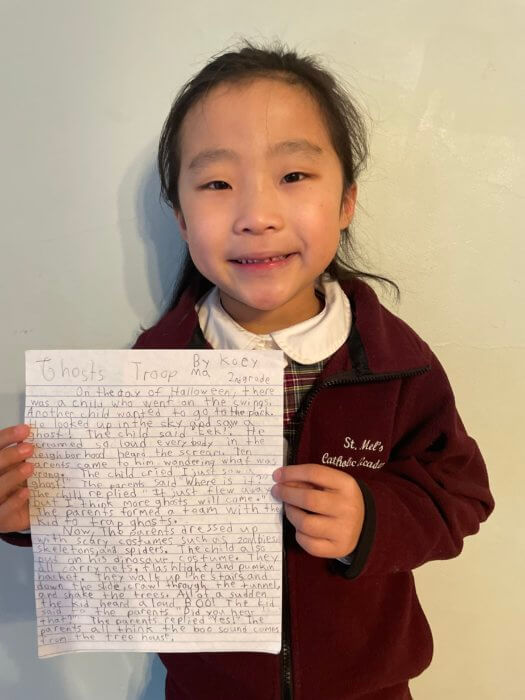 Ghosts Troop By Koey Ma 2nd grade
On the day of Halloween, there
was a child who went on the swings.
Another child wanted to go to the park.
He looked up in the sky and saw a
ghost! The child said "Eek!" He
screamed so loud everybody in the
neighborhood heard the scream. Ten
parents came to him, wondering what was
wrong. The child cried "I just saw a
ghost!" The parents said "Where is it?"
The child replied "It just flew away
but I think more ghosts will come."
The parents formed a team with the
kid to trap ghosts.
Now, the parents dressed up
with scary costumes such as zombies,
skeletons, and spiders. The child also
put on his dinosaur costume. They
all carry nets, flashlight, and pumkin
basket. They walk up the stairs and
down the slide, crawl through the tunnel,
and shake the trees. All of a sudden
the kid heard a loud, BOO! The kid
said to the parents "Did you hear
that?" The parents replied Yes!" The
parents all think the boo sound comes
from the tree house.
St. Mel's
Catholic Academy